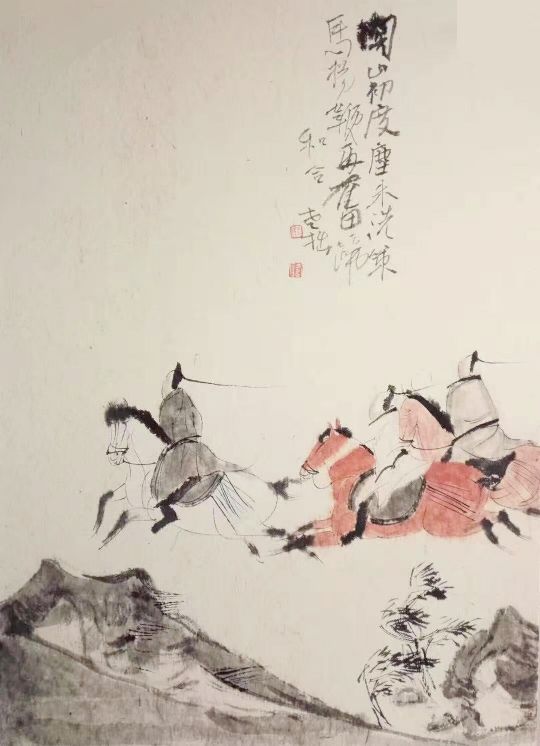 關山初度塵未洗策
馬揚鞭再奮蹄
和合